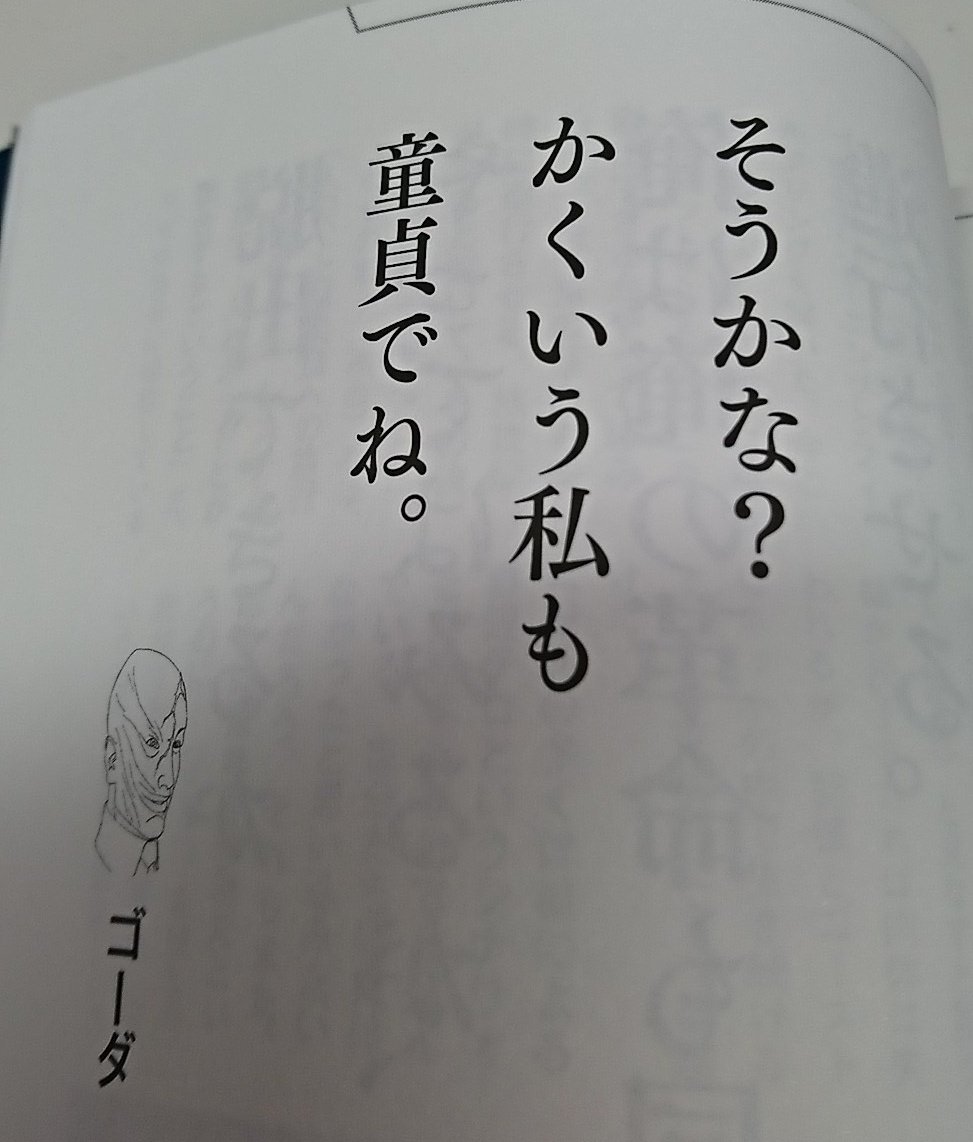 そうかな?
かくいう私も
童貞でね。
ゴーダ